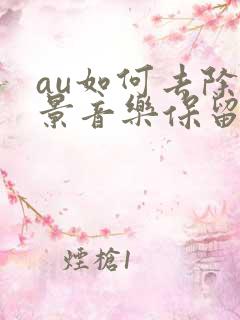 au如何去除
景音樂保留
煙槍1